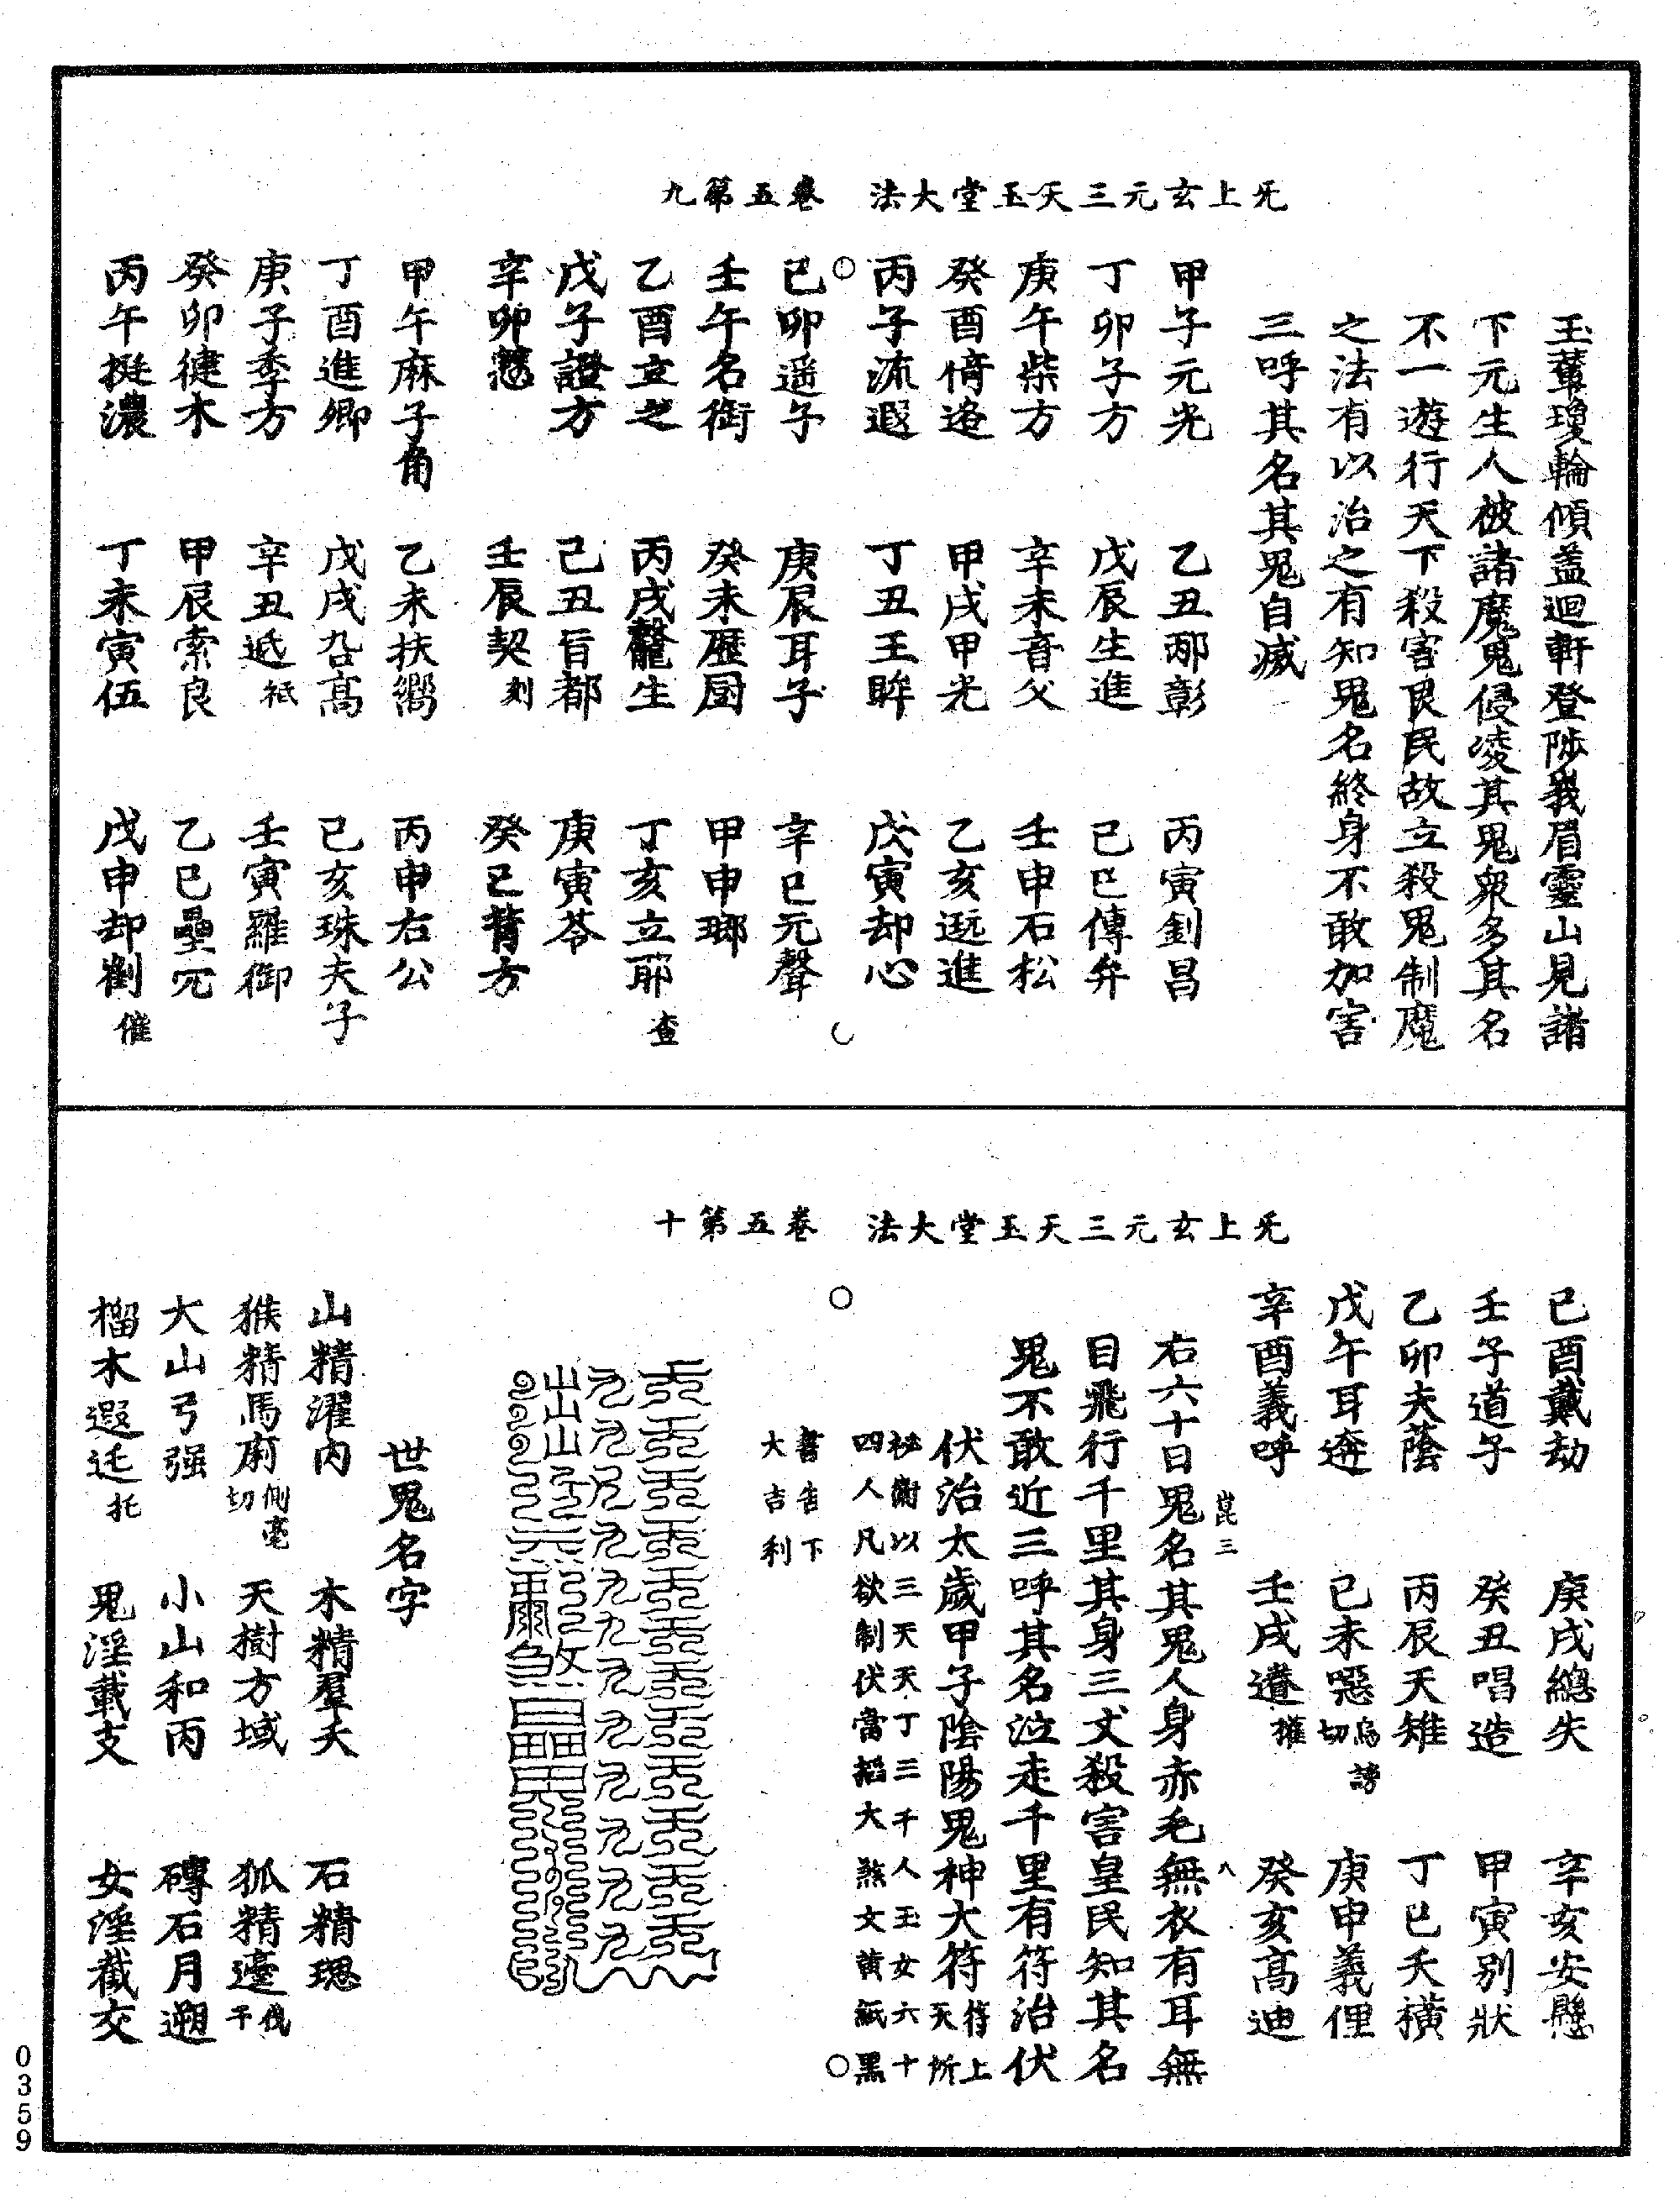 玉輦瓊輪傾蓋迴軒登陟峩眉靈山見諸
下元生人被諸魔鬼侵凌其鬼衆多其名
不一遊行天下殺害良民故立殺鬼制魔
之法有以治之有知鬼名終身不敢加害
三呼其名其鬼自滅
无上玄元三天玉堂大法 卷五第九
甲子元光 乙丑那彰 丙寅釗昌
丁卯子方 戊辰生進 己巳傳弁
庚午柴方 辛未音父 壬申石松
癸酉倚逢 甲戌甲光 乙亥逛進
丙子流遐 丁丑王眸 戊寅却心
己卯遥子 庚辰耳子 辛巳元聲
壬午名街 癸未歷厨 甲申瑯
乙酉立之 丙戌生 丁亥立耶 查
戊子證方 己丑旨都 庚寅苓
辛卯 壬辰契 刻 癸巳背方
甲午麻子角 乙未扶嚮 丙申右公
丁酉進卿 戊戌高 己亥珠夫子
庚子季方 辛丑逓 祗 壬寅羅御
癸卯健木 甲辰索良 乙巳壘冗
丙午挺濃 丁未寅伍 戊申却 催
己酉戴劫 庚戌總失 辛亥安懸
壬子道子 癸丑唱造 甲寅别狀
乙卯夫蔭 丙辰天雉 丁巳夭橫
戊午耳 己未噁 烏謗切 庚申義俚
辛酉義呼 壬戌 權 癸亥高迪
右六十日鬼名其鬼人身赤毛無衣有耳無
目飛行千里其身三丈殺害皇民知其名
鬼不敢近三呼其名泣走千里有符治伏
伏治太歲甲子陰陽鬼神大符 符上天所
祕衛以三天天丁三千人玉女六十
四人凡欲制伏當招大煞文黃紙黑
无上玄元三天玉堂大法 卷五第十
書告下
大吉利
世鬼名字
山精濯肉 木精羣夭 石精瑥
猴精馬 側毫切 天樹方域 狐精 戔干
大山弓强 小山和丙 磚石月遡
榴木遐迋 托 鬼淫載支 女淫截交
0359